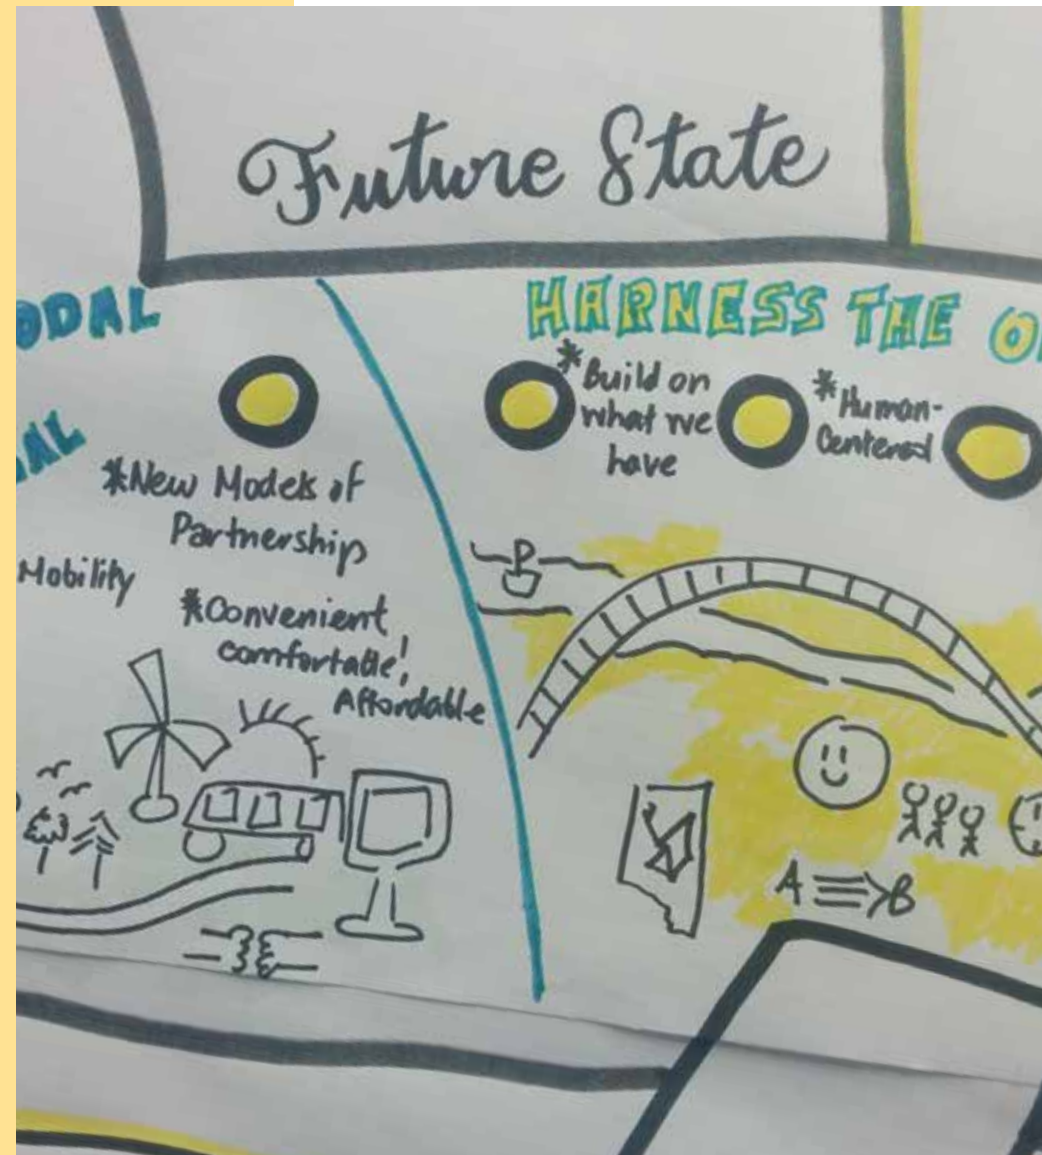 Future State
ODAL
AL
*New Models of
Partnership
Mobility
*Convenient,
comfortable!
Affordable
HARNESS THE O
*Build on
what we
have
*Human-
Centered
P
A B